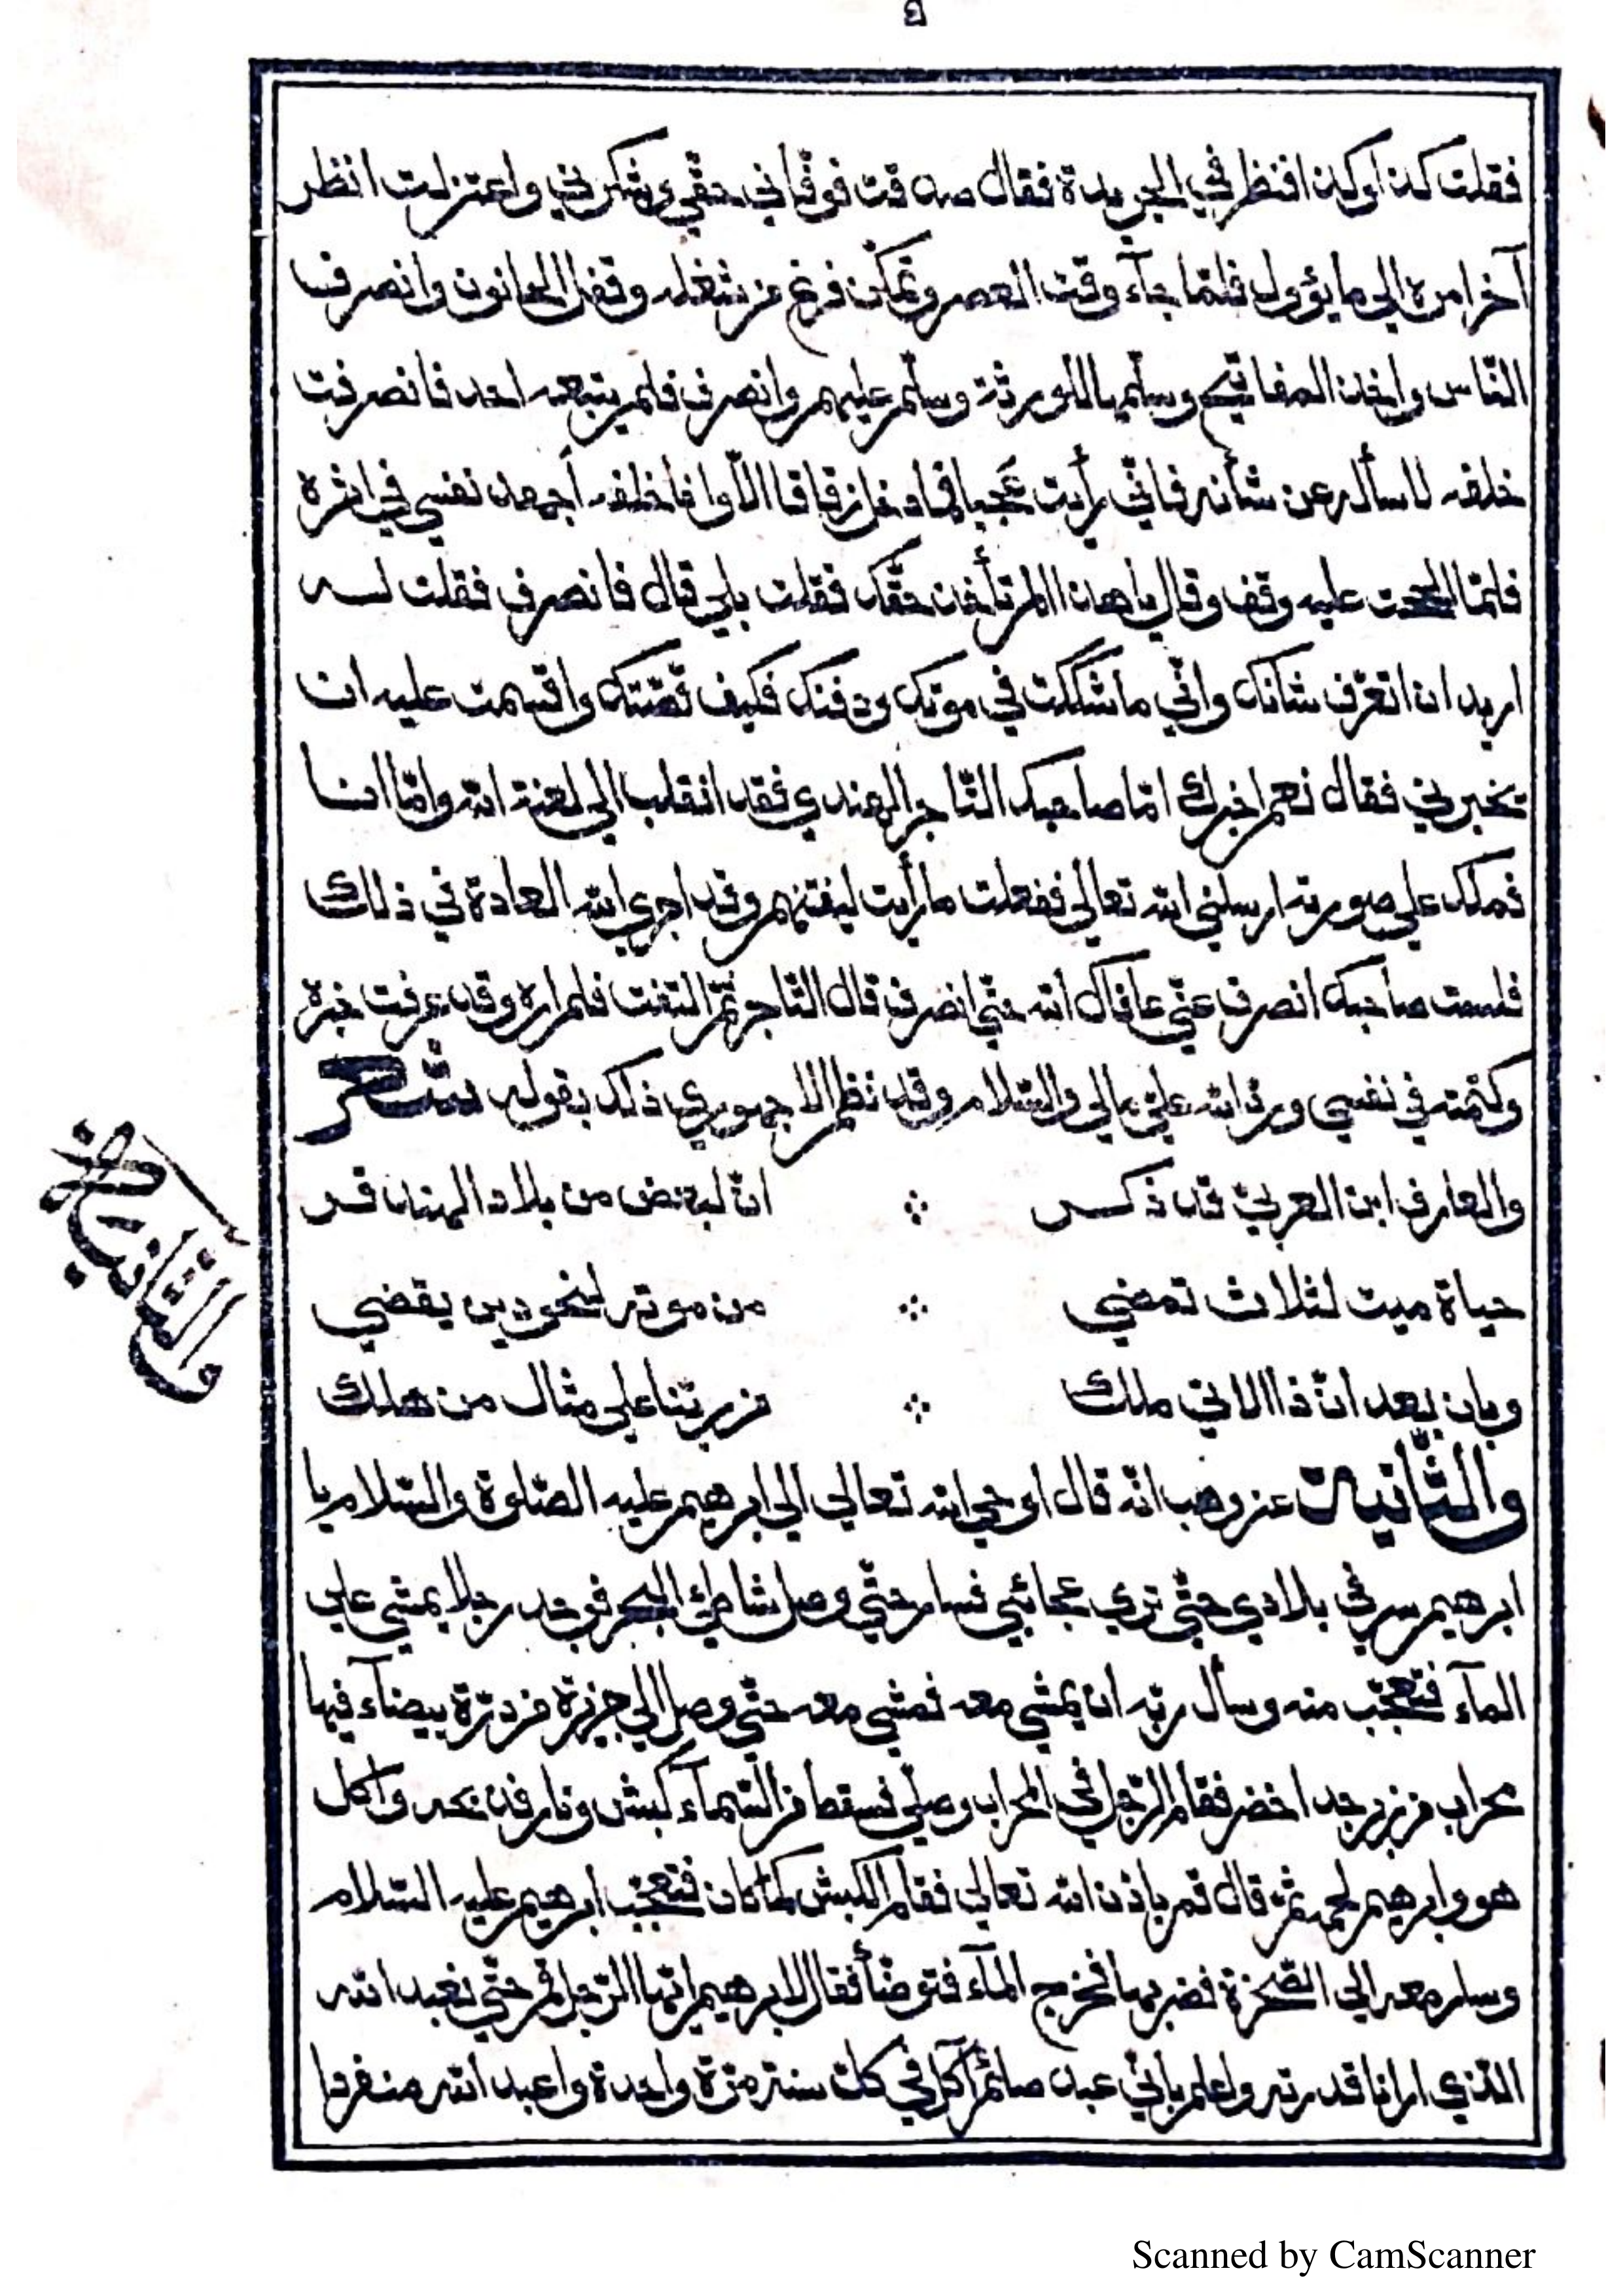 ٩
فقلت كذا وكذا فنظر في الجريدة فقال صدقت فوفّاني حقّي وشكرني واعتزلت انظر
آخر امره الى ما يؤول فلمّا جآء وقت العصر وتمكّن فرغ من شغله وقفل الحانوت وانصرف
النّاس واخذ المفاتيح وسلّمها للورثة وسلّم عليهم وانصرف فلم يتبعه احد فانصرفت
خلفه لاسأله عن شأنه فانّي رأيت عجبا فما دخل زقاقا الّا وانا خلفه أجهد نفسي في اثره
فلمّا الححت عليه وقف وقال يا هذا الم تأخذ حقّك فقلت بلى قال فانصرف فقلت له
اريد ان اتعرّف شانك وانّي ما شككت في موتك ودفنك فكيف قصّتك واقسمت عليه ان
يخبرني فقال نعم اخبرك امّا صاحبك التّاجر الهندي فقد انقلب الى لعنة الله وامّا انا
فملك على صورته ارسلني الله تعالى ففعلت ما رأيت ليفتنهم وقد اجرى الله العادة في ذلك
فلست صاحبك انصرف عنّي عافاك الله حتّى انصرف قال التّاجر ثمّ التفت فلم اره وقد عرفت خبره
وكتمته في نفسي وردّ الله عليّ مالي والسّلام وقد نظم الاجهوري ذلك بقوله شعر
والعارف ابن العربيّ قد ذكر ∴ انّ لبعض من بلاد الهند قر
حياة ميت لثلاث تمضي ∴ من موته لنحو دين يقضي
وبان بعد انّ ذا الاتي ملك ∴ من ربّنا على مثال من هلك
والثّانية عن وهب انّه قال اوحى الله تعالى الى ابرهيم عليه الصّلوة والسّلام يا
ابرهيم سر في بلادي حتّى ترى عجائبي فسار حتّى وصل شاطئ البحر فوجد رجلا يمشي على
المآء فتعجّب منه وسأل ربّه ان يمشي معه فمشى معه حتّى وصل الى جزيرة من درّة بيضآء فيها
محراب من زبرجد اخضر فقام الرّجل في المحراب وصلّى فسقط من السّمآء كبش ونار فذبحه واكل
هو وابرهيم لحمه ثمّ قال قم باذن الله تعالى فقام الكبش كما كان فتعجّب ابرهيم عليه السّلام
وسار معه الى الصّخرة فضربها فخرج المآء فتوضّأ فقال لابرهيم ايّها الرّجل قم حتّى نعبد الله
الّذي ارانا قدرته واعلم بانّي عبد صائم آكل في كلّ سنة مرّة واحدة واعبد الله منفردا
والثّانية
Scanned by CamScanner